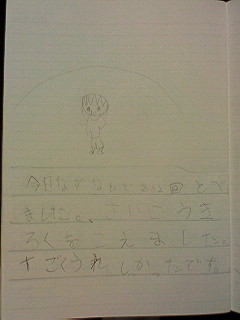 今日なわとびで 回とべ
ました。さいこうき
ろくをこえました。
すごくうれしかったです。